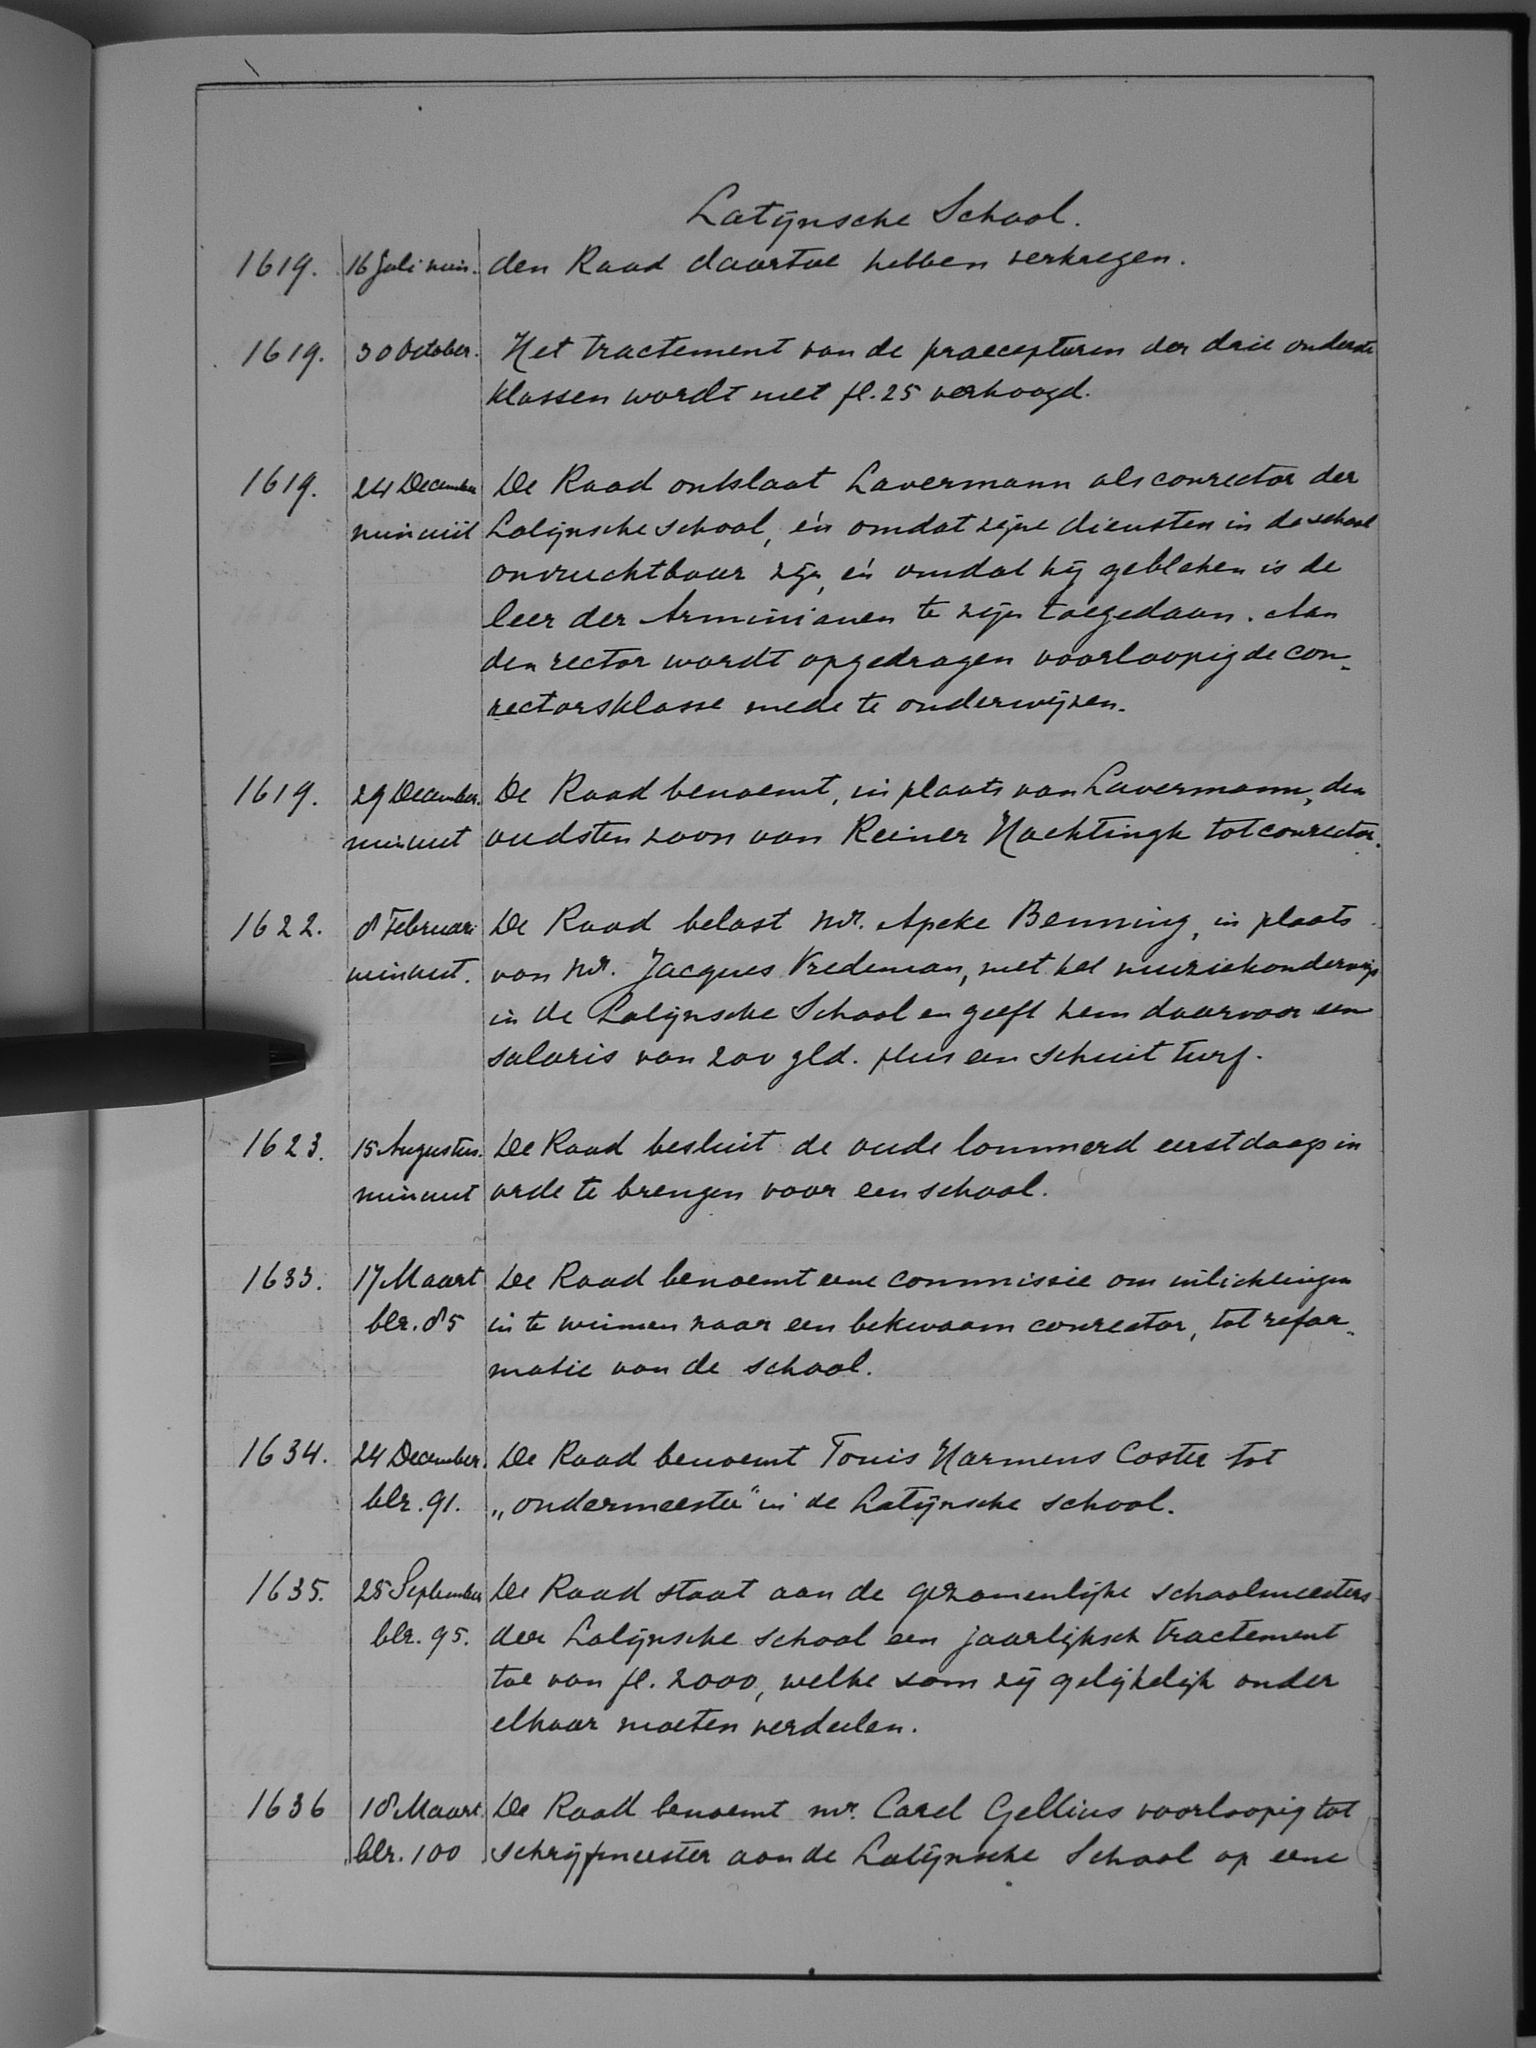 Latijnsche School.
1619. 16 Juli min. den Raad daartoe hebben verkregen.
1619. 30 October. Het tractement van de praeceptoren der drie onderste
klassen wordt met fl. 25 verhoogd.
1619. 24 December De Raad ontslaat Lavermann als conrector der
minuut Latijnsche school, én omdat zijne diensten in de school
onvruchtbaar zijn, én omdat hij gebleken is de
leer der Arminianen te zijn toegedaan. Aan
den rector wordt opgedragen voorloopig de con-
rectorsklasse mede te onderwijzen.
1619. 29 December. De Raad benoemt, in plaats van Lavermann, den
minuut oudsten zoon van Reiner Hachtingk tot conrector.
1622. 8 Februari De Raad belast mr. Apeke Benning, in plaats
minuut. van mr. Jacques Vredeman, met het muziekonderwijs
in de Latijnsche School en geeft hem daarvoor een
salaris van 200 gld. plus een schuit turf.
1623. 15 Augustus. De Raad besluit de oude lommerd eerstdaags in
minuut orde te brengen voor een school.
1633. 17 Maart De Raad benoemt eene commissie om inlichtingen
blz. 85 in te winnen naar een bekwaam conrector, tot refor-
matie van de school.
1634. 24 December. De Raad benoemt Tonis Harmens Coster tot
blz. 91. „ondermeester" in de Latijnsche school.
1635. 25 September De Raad staat aan de gezamenlijke schoolmeesters
blz. 95. der Latijnsche school een jaarlijksch tractement
toe van fl. 2000, welke som zij gelijkelijk onder
elkaar moeten verdeelen.
1636 18 Maart. De Raad benoemt mr. Carel Gellius voorloopig tot
blz. 100 schrijfmeester aan de Latijnsche School op eene